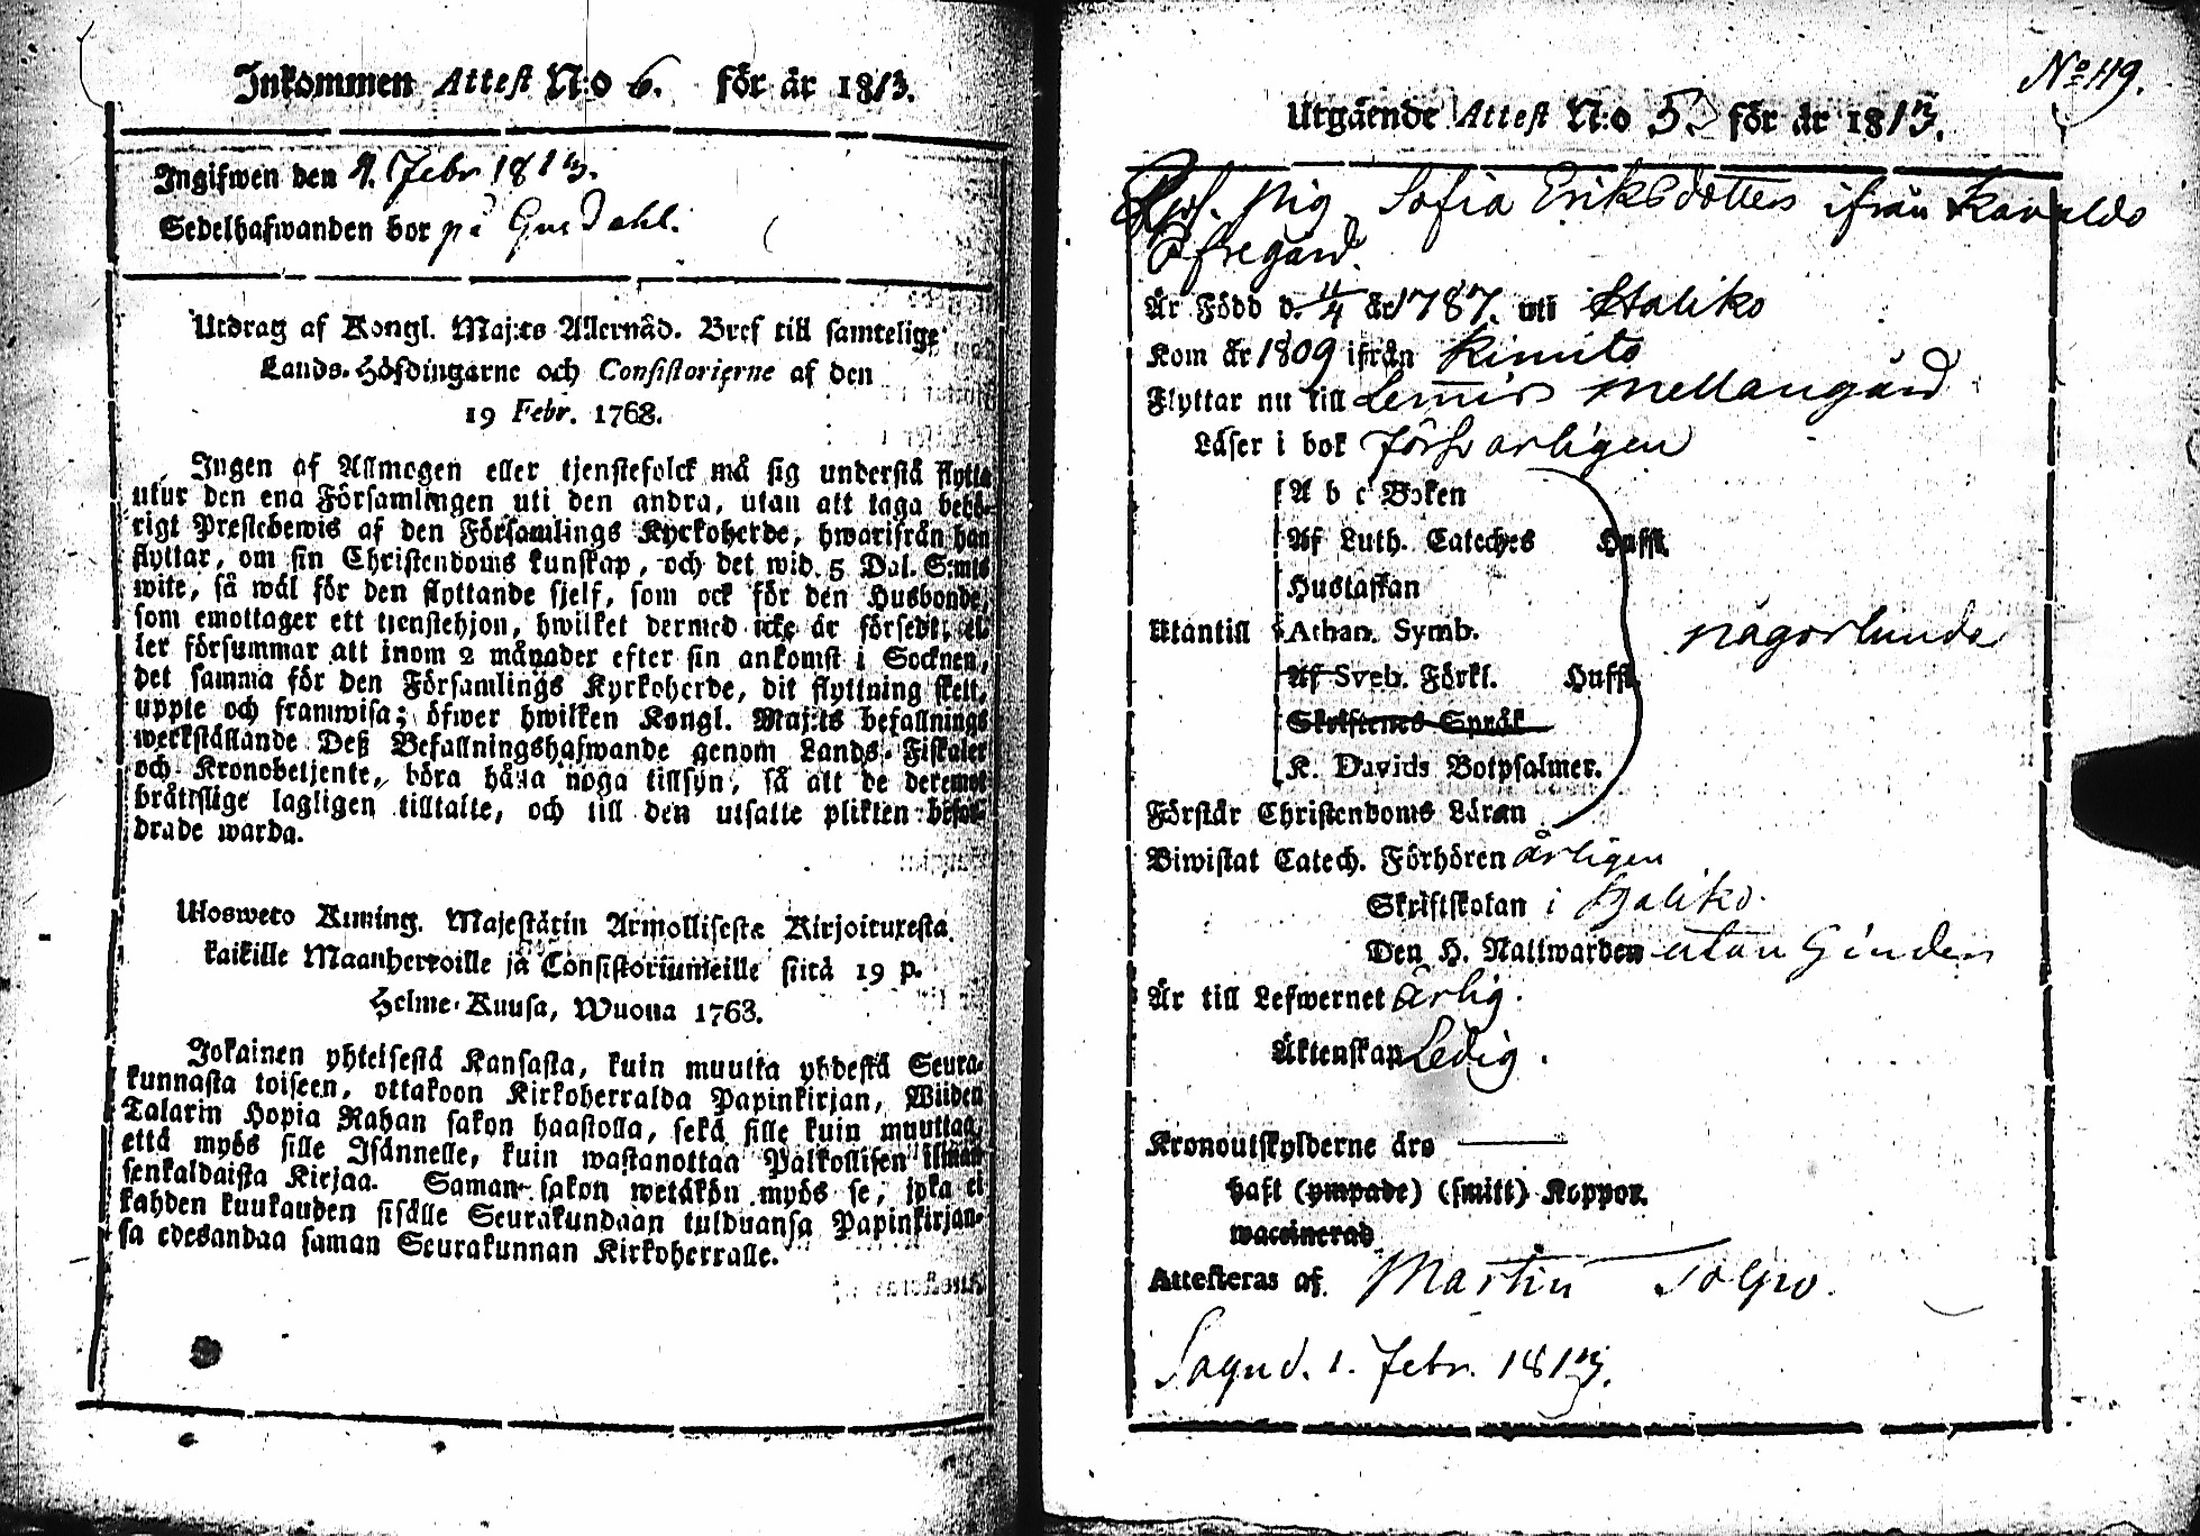 Inkommen Attest N:o 6. för år 1813.
Ingifwen den 4. Febr 1813.
Sedelhafwanden bor på
Utdrag af Kongl. Maj:ts Allernåd. Bref till samtelige
Lands-Höfdingarne och Consistorierne af den
19 Febr. 1768.
Ingen af Allmogen eller tjenstefolck må sig understå flytta
utur den ena Församlingen uti den andra, utan att taga behö-
rigt Prestebewis af den Församlings Kyrkoherde, hwarifrån han
flyttar, om sin Christendoms kunskap, och det wid 5 Dal. S:mts
wite, så wäl för den flyttande sjelf, som ock för den Husbonde,
som emottager ett tienstehjon, hwilket dermed icke är försedt, el-
ler försummar att inom 2 månader efter sin ankomst i Socknen,
det samma för den Församlings Kyrkoherde, dit flyttning skett,
uppte och framwisa; öfwer hwilken Kongl. Maj:ts befallnings
werkställande Deß Befallningshafwande genom Lands-Fiskaler
och Kronobetjente, böra hålla noga tillsyn, så att de deremot
bråttslige lagligen tilltalte, och till den utsatte plikten befor-
drade warda.
Ulosweto Kuning. Majestätin Armollisesta Kirjoituxesta
kaikille Maanherroille ja Consistoriumeille siitä 19 p.
Helme-Kuusa, Wuonna 1763.
Jokainen yhteisestä Kansasta, kuin muutta yhdestä Seura-
kunnasta toiseen, ottakoon Kirkoherralda Papinkirjan, Wiiden
Talarin Hopia Rahan sakon haastolla, sekä sille kuin muuttaa,
että myös sille Isännelle, kuin wastanottaa Palkollisen ilman
senkaldaista Kirjaa. Saman sakon wetäkön myös se, joka ei
kahden kuukauden sisälle Seurakundaan tulduansa Papinkirjan-
sa edesandaa saman Seurakunnan Kirkoherralle.
No 119.
Utgående Attest N:o 5 för år 1813.
Pig. Sofia Eriksdotter ifrån Karvalds
Öfregård.
Är Född d. 11/4 år 1787. uti Haliko
Kom år 1809 ifrån Kimito
Flyttar nu till Lemnis Mellangård
Läser i bok försvarligen
A b c Boken
Af Luth. Cateches Hufst.
Hustaflan
Utantill Athan. Symb. någorlunda
Af Sveb. Förkl. Hufst.
Skriftenes Språk
K. Davids Botpsalmer.
Förstår Christendoms Läran
Biwistat Catech. Förhören årligen
Skriftskolan i Haliko.
Den H. Nattwarden utan hinder
Är till Lefwernet ärlig.
Äktenskap Ledig.
Kronoutskylderne äro
haft (ympade) (smitt) Koppor.
waccinerad
Attesteras af Martin
Sagu d. 1. Febr. 1813.